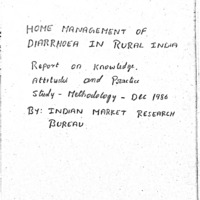 HOME MANAGEMENT OF
DIARRHOEA IN RURAL INDIA
Report on Knowledge.
Attitudes and Practice
Study - Methodology - DEC 1986
BY: INDIAN MARKET RESEARCH
BUREAU